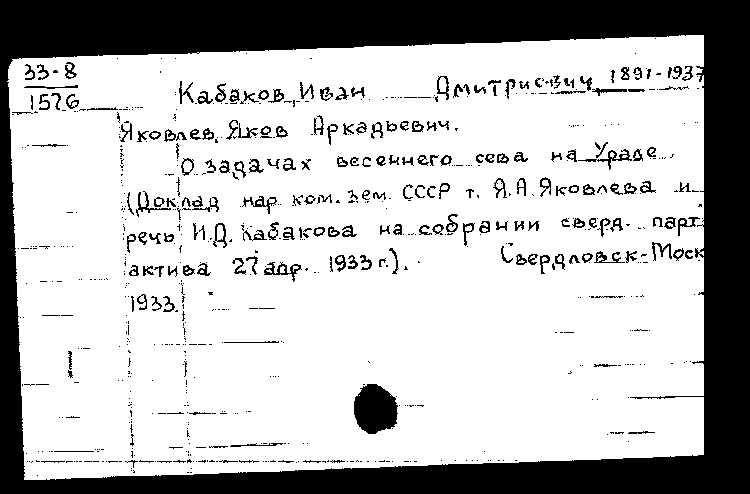 33-8
1576
Кабаков, Иван Дмитриевич, 1891-1937
Яковлев, Яков Аркадьевич.
О задачах весеннего сева на Урале.
(Доклад нар. ком. зем. СССР т. Я.А. Яковлева и
речь И.Д. Кабакова на собрании сверд. парт.
актива 27 апр. 1933 г.). Свердловск-Моск
1933.